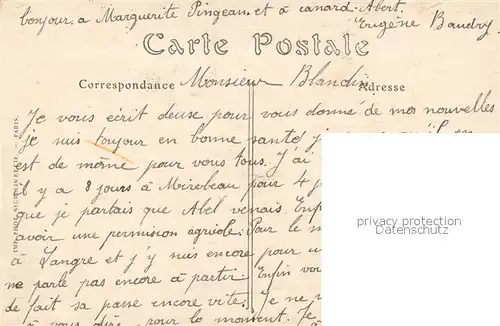 bonjour. a Marguerite Pingeau. et a canard. Abert.
Eugène Baudry
Carte Postale
Correspondance Monsieur Blandin Adresse
Je vous écrit deuse pour vous donné de mes nouvelles
je suis toujour en bonne santé j
est de même pour vous tous. J'ai
il y a 8 jours à Mirebeau pour 4 j
que je partais que Abel venais. Enf
avoir une permision agricole. Pour le m
à Langre et j'y suis encore pour u
ne parle pas encore à partir. Enfin vou
de fait sa passe encore vite. Je ne
à vous dire pour le moment. Je
privacy protection
Datenschutz